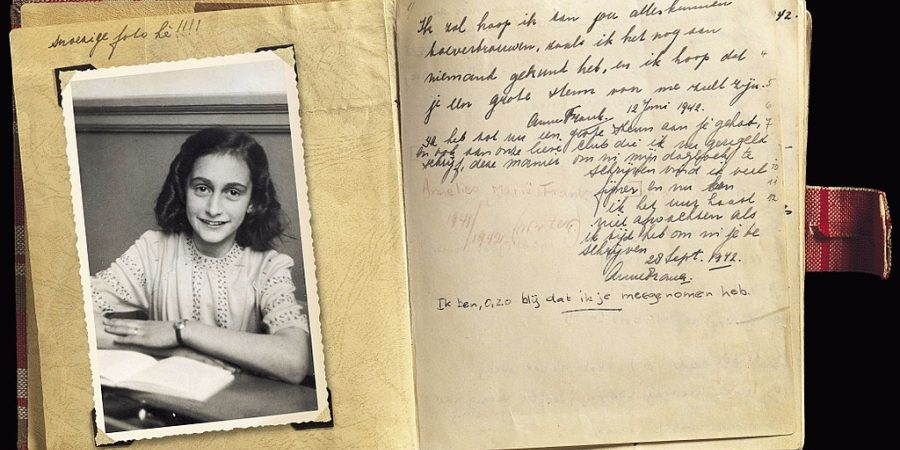 snoezige foto hè!!!!
42.
Ik zal hoop ik aan jou alles kunnen
toevertrouwen, zoals ik het nog aan
niemand gekund heb, en ik hoop dat 4
je een grote steun voor me zult zijn. 5
Anne Frank. 12 Juni 1942. 6
Ik heb tot nu een grote steun aan je gehad, 7
en ook aan onze lieve club die ik nu geregeld
schrijf, deze manier om in mijn dagboek te
schrijven vind ik veel 10
fijner en nu kan 11
ik het uur haast 12
niet afwachten als
ik tijd heb om in je te
schrijven
28 Sept. 1942.
Anne Frank.
Annelies Marie Frank
1941/
1942 (winter)
Ik ben, o, zo blij dat ik je meegenomen heb.